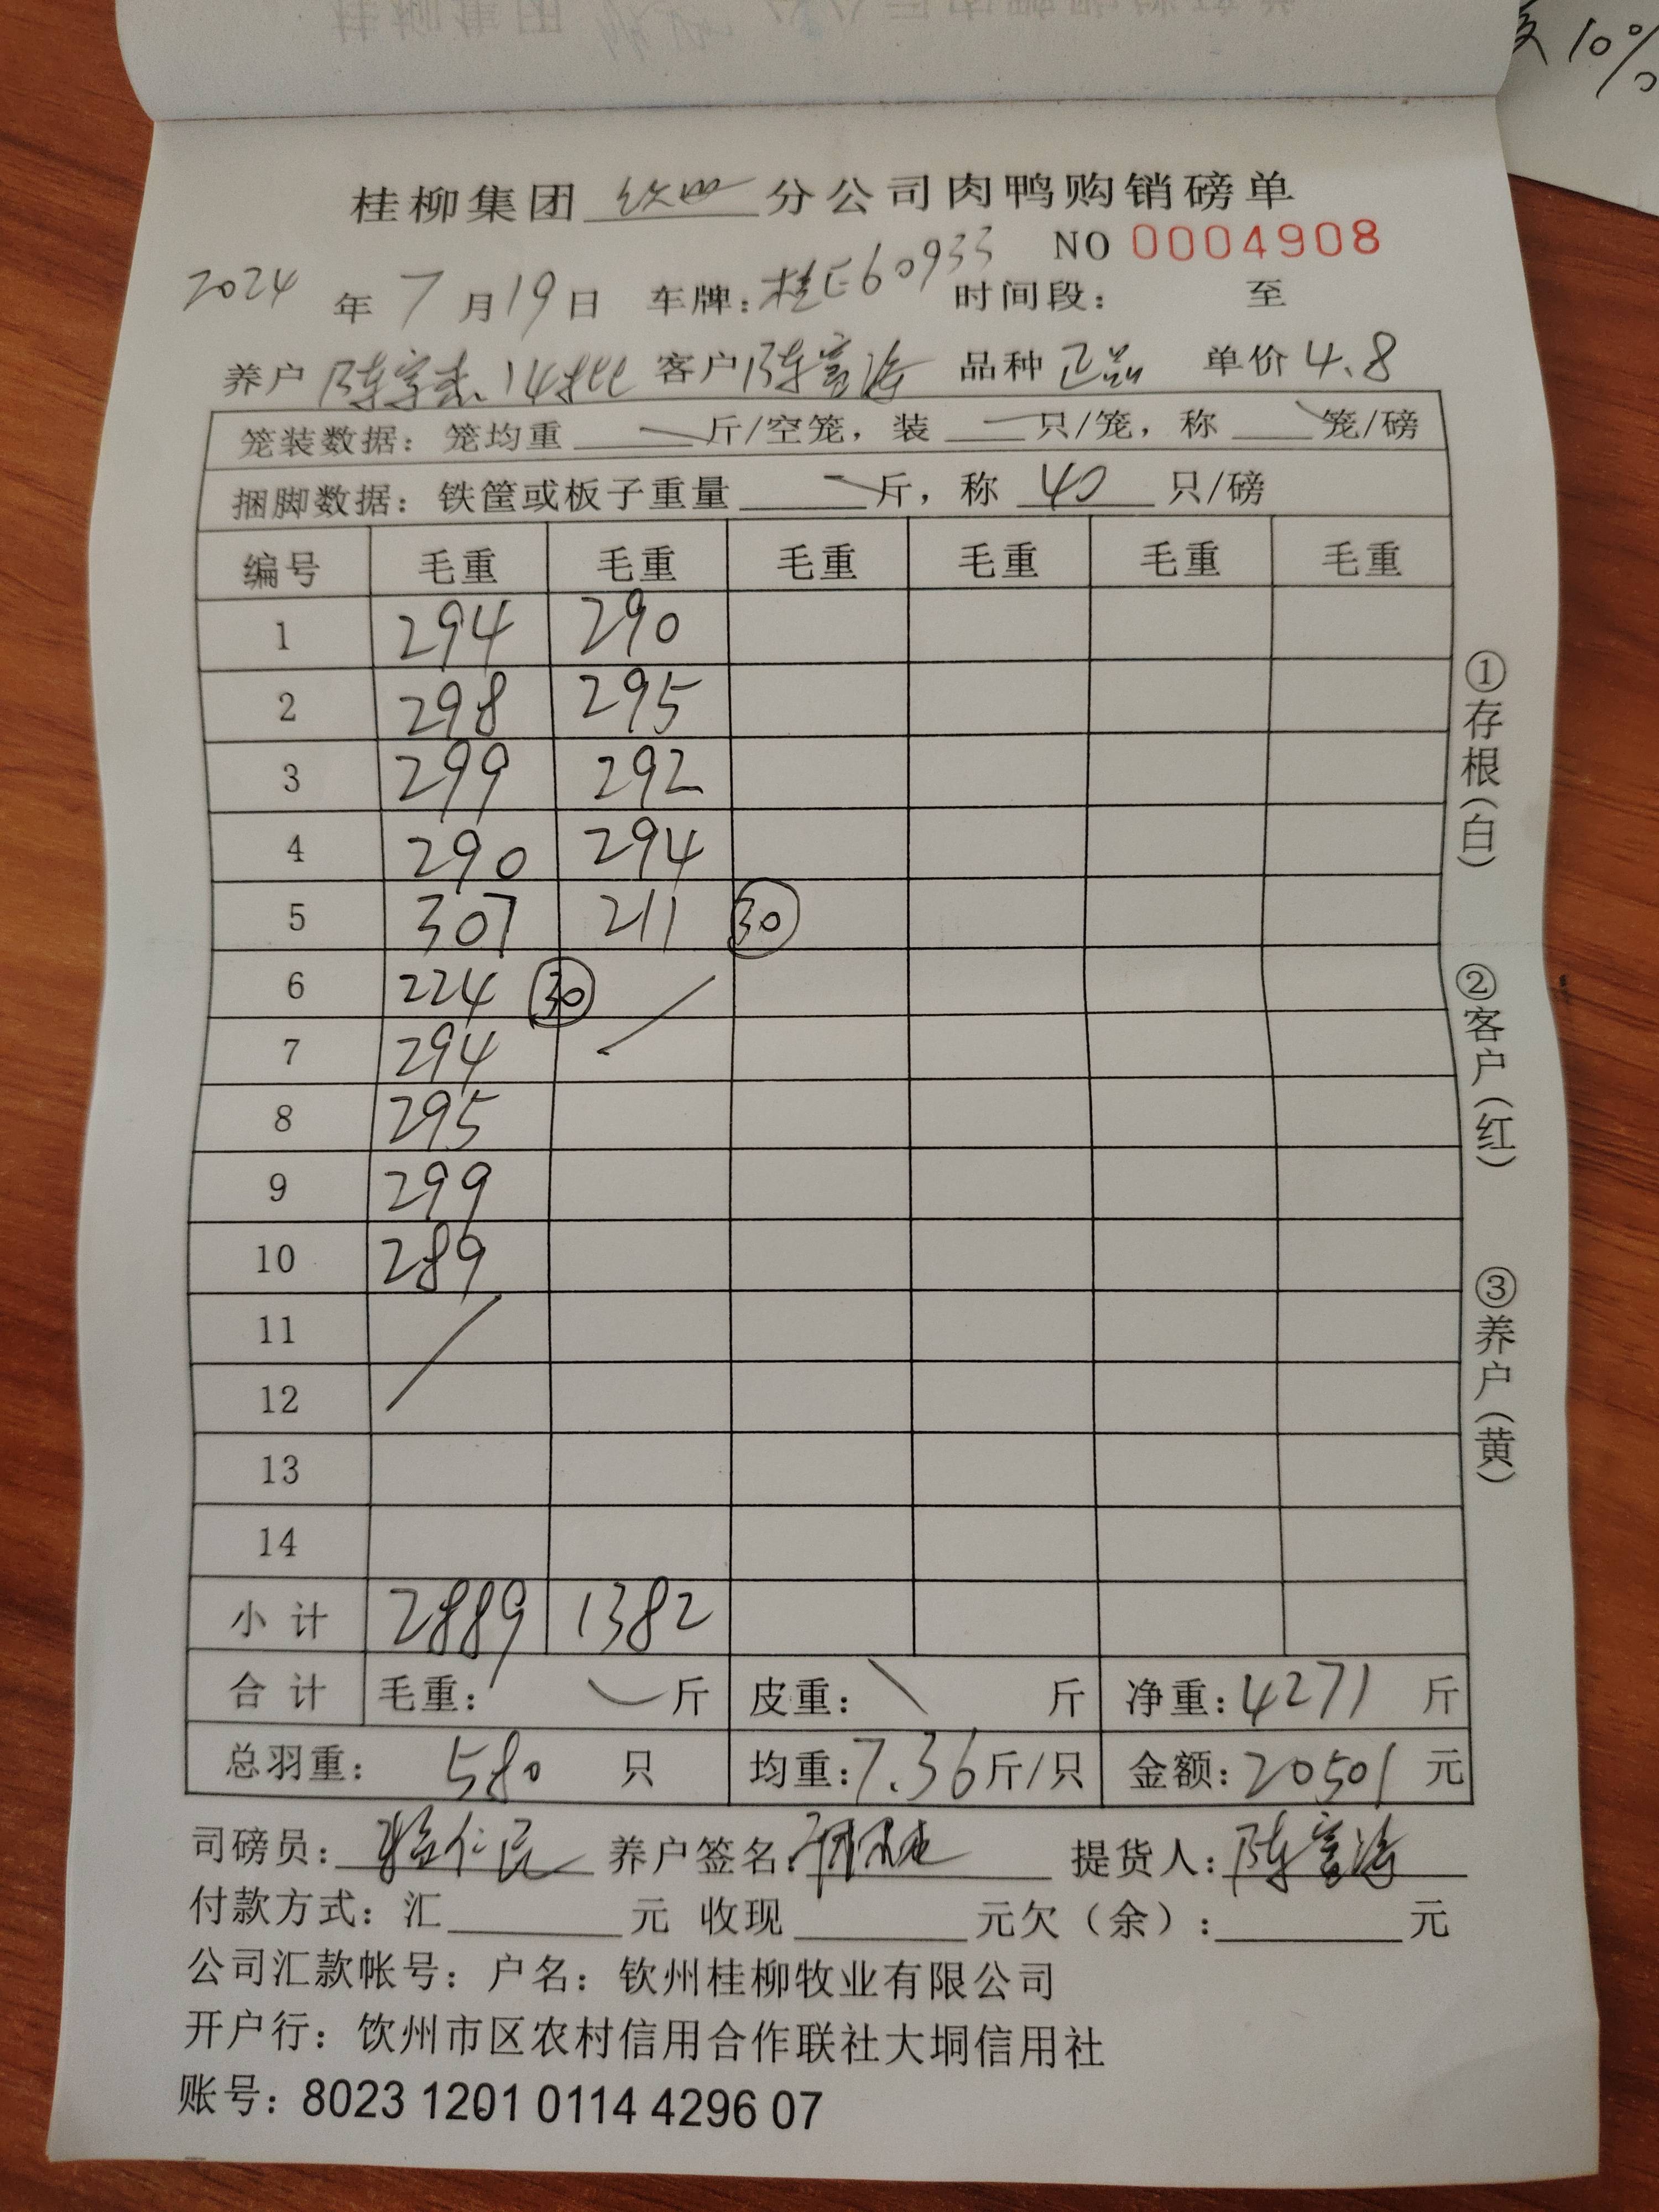 10%
桂柳集团 钦四 分公司肉鸭购销磅单
NO 0004908
2024 年 7 月 19 日 车牌：桂E60933 时间段： 至
养户 陈宗杰 14批 客户 陈富海 品种 正品 单价 4.8
笼装数据：笼均重 斤/空笼，装 只/笼，称 笼/磅
捆脚数据：铁筐或板子重量 斤，称 40 只/磅
编号 毛重 毛重 毛重 毛重 毛重 毛重
1 294 290
2 298 295
3 299 292
4 290 294
5 307 211 30
6 224 30
7 294
8 295
9 299
10 289
11
12
13
14
小计 2889 1382
合计 毛重： 斤 皮重： 斤 净重：4271 斤
总羽重： 580 只 均重：7.36 斤/只 金额：20501 元
司磅员： 养户签名： 提货人：陈富海
付款方式：汇 元 收现 元欠（余）： 元
公司汇款帐号：户名：钦州桂柳牧业有限公司
开户行：饮州市区农村信用合作联社大垌信用社
账号：8023 1201 0114 4296 07
①存根（白）
②客户（红）
③养户（黄）